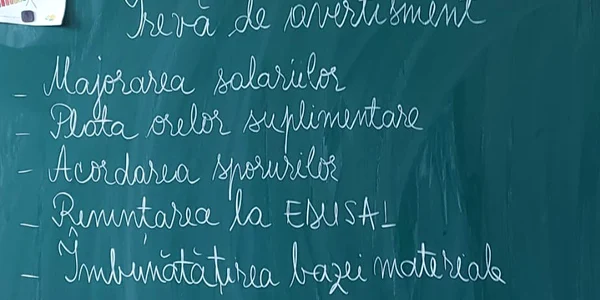 Grevă de avertisment
- Majorarea salariilor
- Plata orelor suplimentare
- Acordarea sporurilor
- Renunțarea la EDUSAL
- Îmbunătățirea bazei materiale